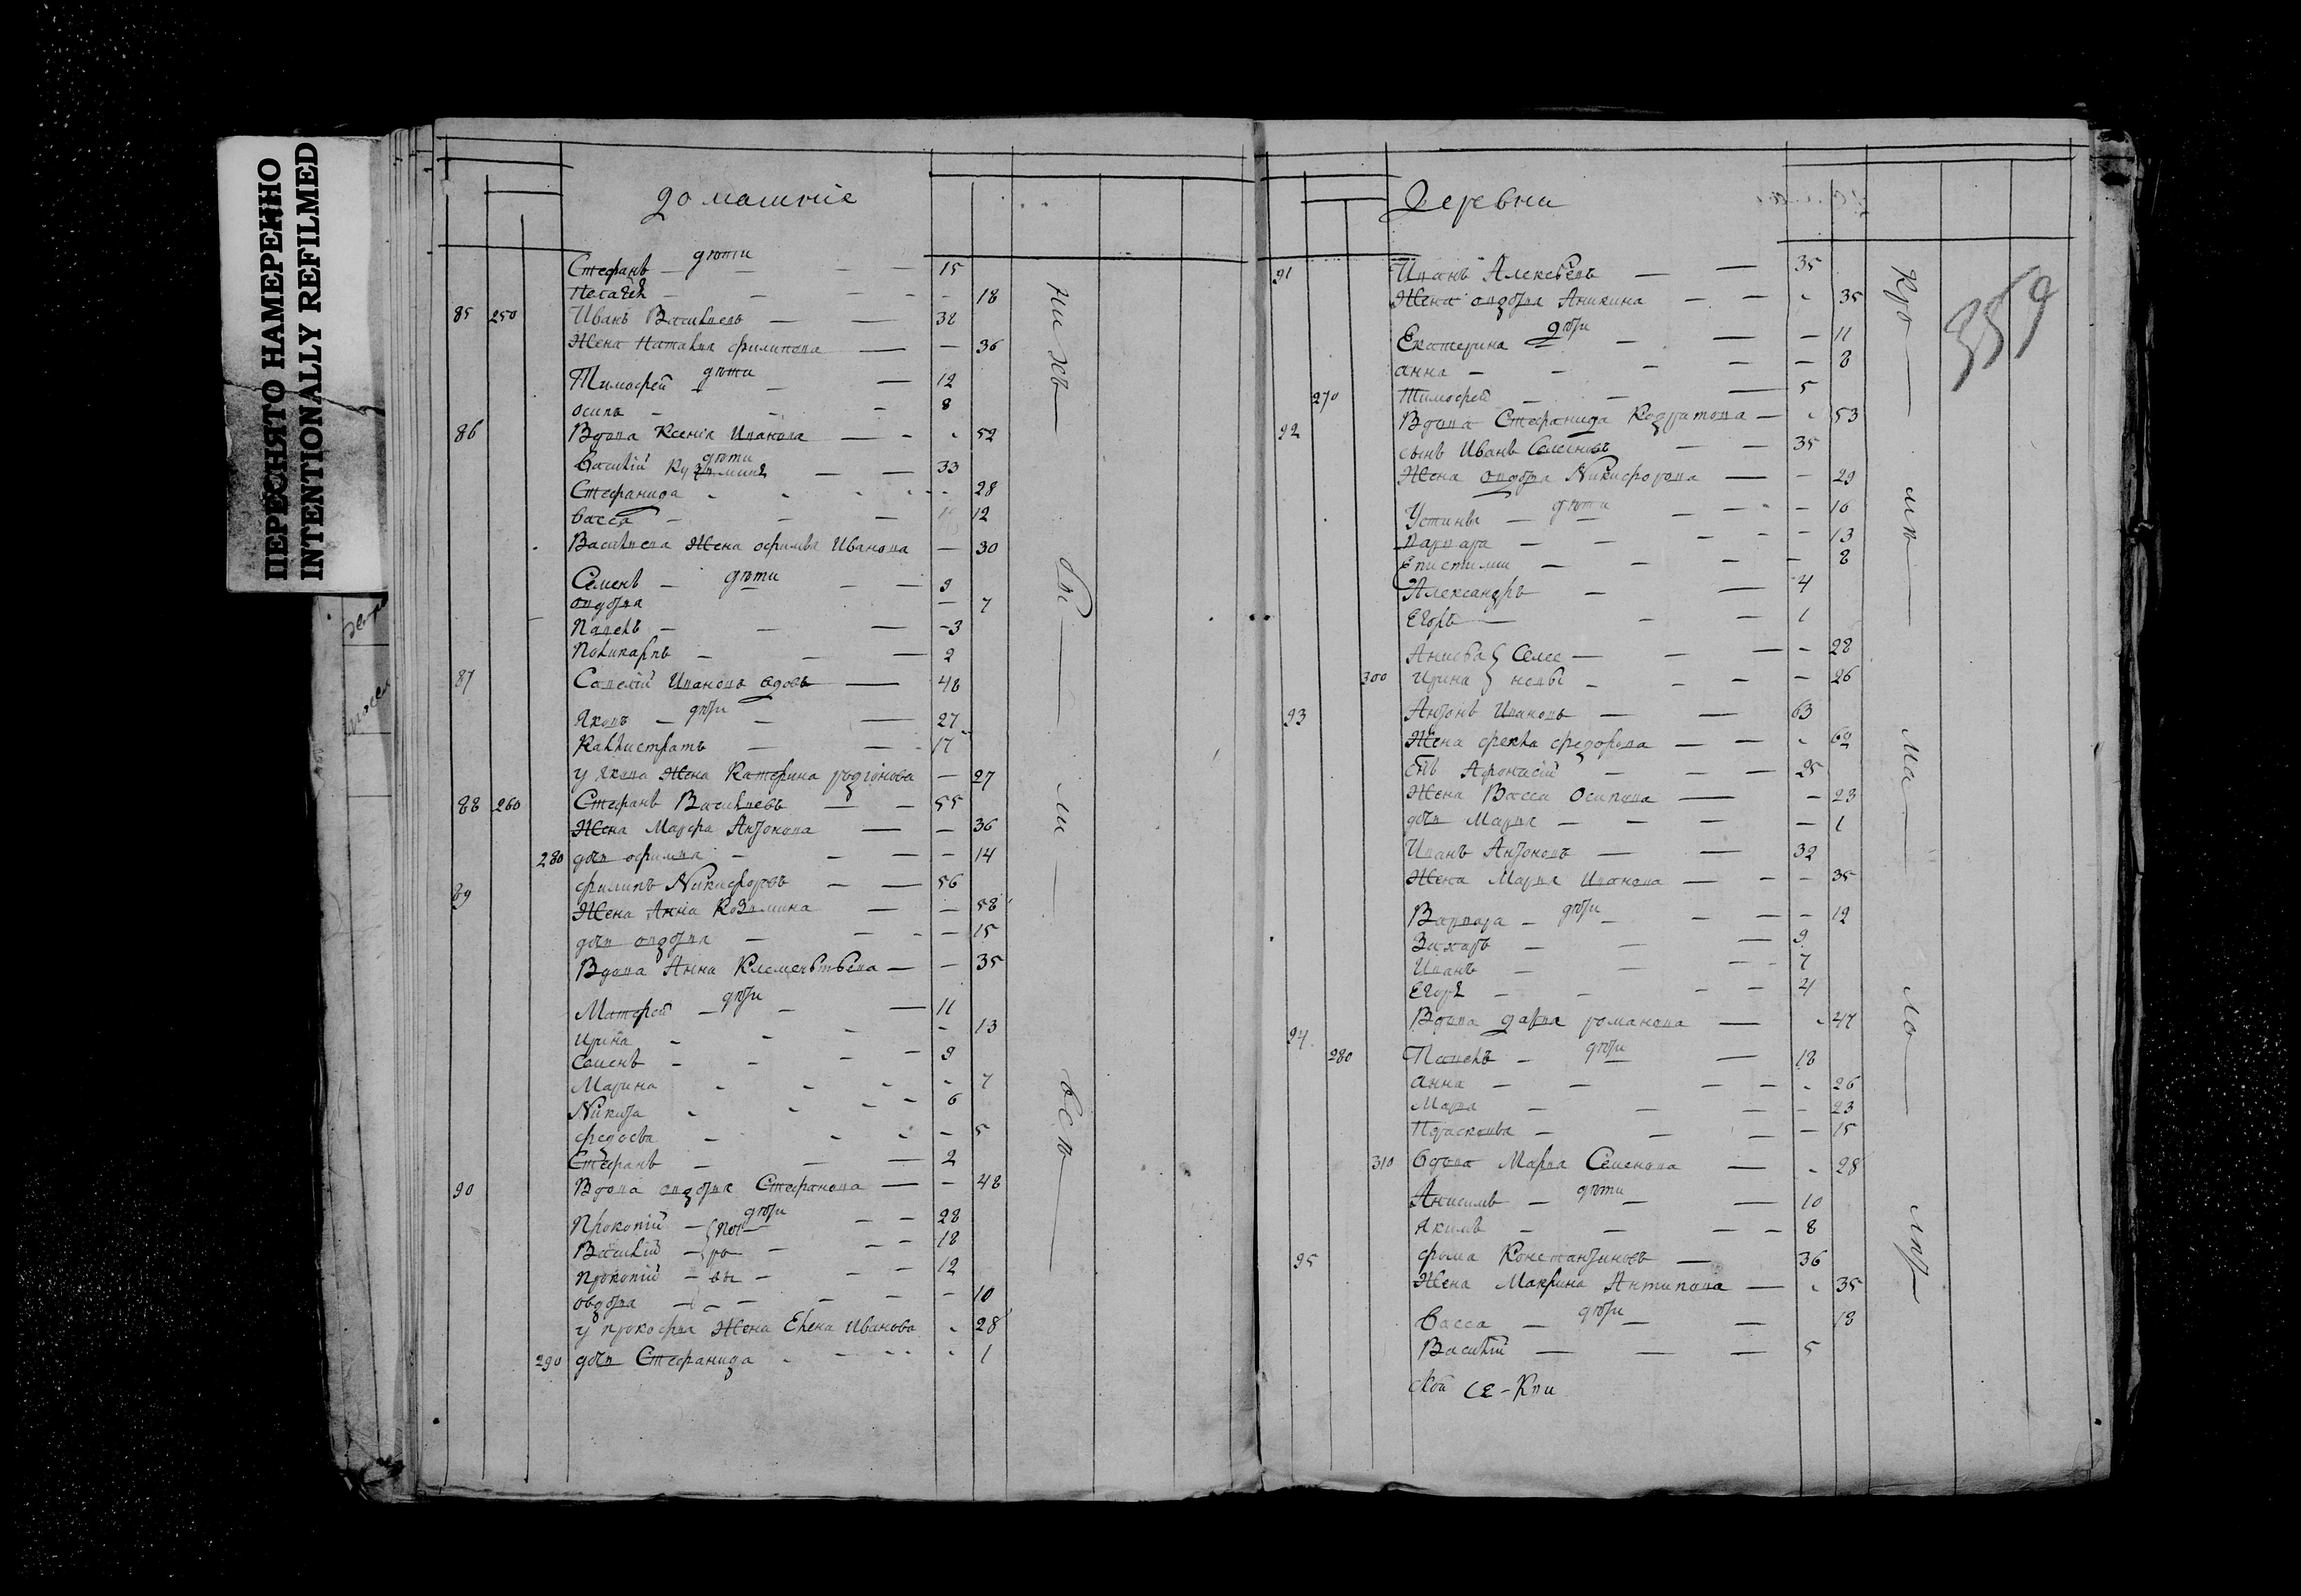 ПЕРЕСНЯТО НАМЕРЕННО
INTENTIONALLY REFILMED
домашние
дѣти
Стефанъ 15
Пелагея 18
85 250 Иванъ Васильевъ 38
Жена Наталья филипова 36
дѣти
Тимофей 12
осипъ 8
86 Вдова Ксения Иванова 52
дѣти
василий Кузминъ 33
Стефанида 28
васса 12
Васильева Жена офимья Иванова 30
Семенъ дѣти 9
овдотья 7
Павелъ 3
Поликарпъ 2
87 Савелий Ивановъ вдовъ 48
Яковъ дѣти 27
Каллистратъ 17
у якова Жена Катерина родионова 27
88 260 Стефанъ Васильевъ 55
Жена Марфа Антонова 36
280 дочь офимья 14
89 филипъ Никифоровъ 56
Жена Анна Козмина 58
дочь овдотья 15
Вдова Анна Клементьева 35
Матфей дѣти 11
ирина 13
Семенъ 9
Марина 7
Никита 6
федосья 5
Стефанъ 2
90 Вдова овдотья Стефанова 48
дѣти
Прокопий 28
Василий 18
прокопий 12
овдотья 10
у прокофья Жена Елена Иванова 28
290 дочь Стефанида 1
бы
ли
всѣ
Деревни
359
91 Иванъ Алексѣевъ 35
Жена овдотья Аникина 35
Екатерина дѣти 11
анна 8
270 Тимофей 5
92 Вдова Стефанида Кодратова 53
сынъ Иванъ Семеновъ 35
Жена овдотья Никифорова 29
Устинья дѣти 16
варвара 13
Епистимия 8
Александръ 4
Егоръ 1
Анисья Семе 28
300 ирина новы 26
93 Антонъ Ивановъ 63
Жена фекла федорова 62
снъ Афонасий 25
Жена Васса Осипова 23
дочь Марья 1
Иванъ Антоновъ 32
Жена Марья Иванова 35
Варвара дѣти 12
Захаръ 9
Иванъ 7
Егоръ 4
94 Вдова дарья романова 47
280 Павелъ дѣти 18
анна 26
Марья 23
Прасковья 15
310 вдова Марья Семенова 28
Анисимъ дѣти 10
Якимъ 8
95 фома Константиновъ 36
Жена Макрина Антипова 35
Васса дѣти 13
Василий 5
Кро
мѣ
ма
ло